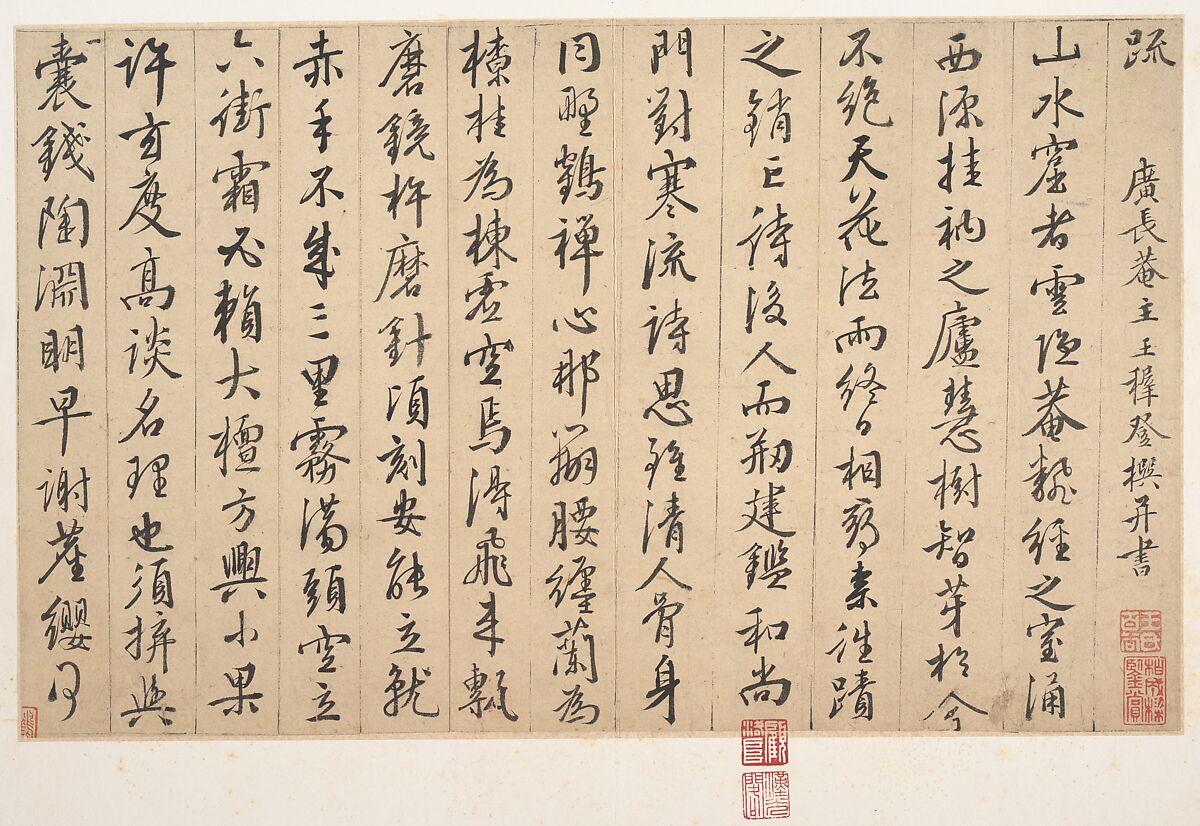 疏 廣長菴主王穉登撰并書
山水窟者雲隱菴翻經之室涌
西源挂衲之廬慧樹智芽於今
不絕天花法雨終日相爲柰往蹟
之銷亡待後人而刱建鑑和尚
門對寒流詩思雖清人骨身
同野鶴禪心那蒻腰纏蘭爲
橑桂爲棟雲窓焉得飛來甎
磨鏡杵磨針頃刻安能立就
赤手不成三里霧滿頭空立
六街霜必賴大檀方興小果
許玄度高談名理也須拚與
一囊錢陶淵明早謝塵纓何